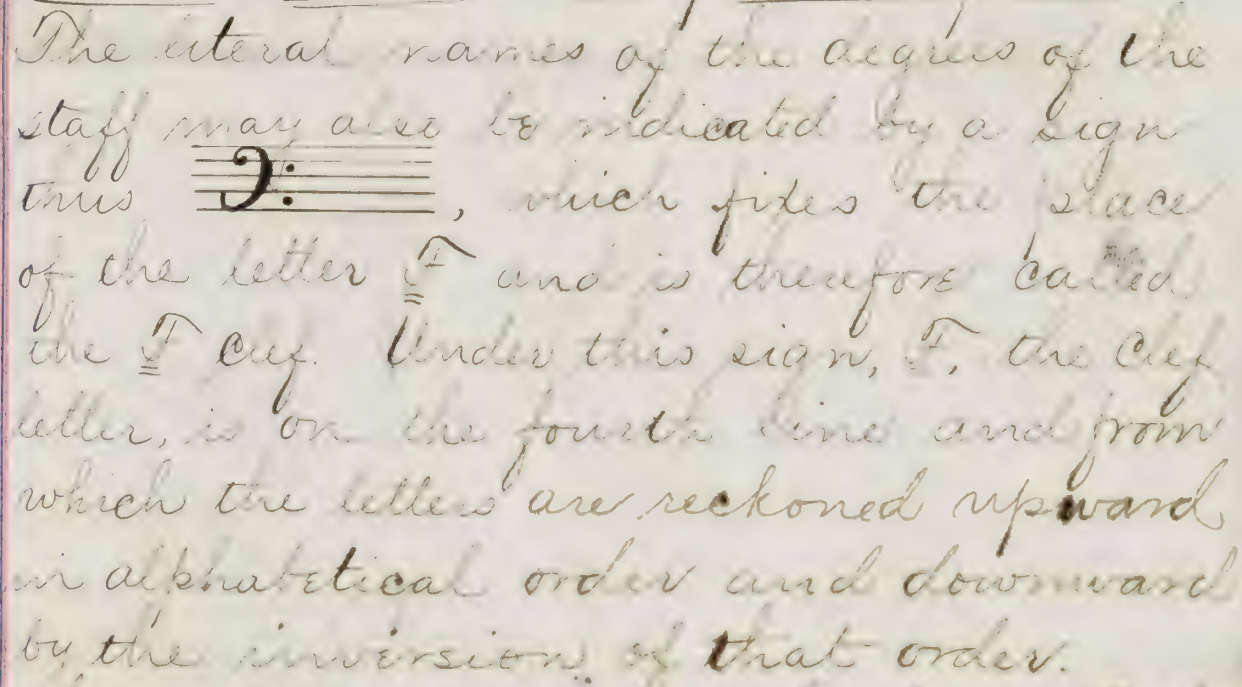 The literal names of the degrees of the
staff may also be indicated by a sign
thus , which fixes the place
of the letter F and is therefore called
the F Clef. Under this sign, F, the Clef
letter, is on the fourth line and from
which the letters are reckoned upward
in alphabetical order and downward
by the inversion of that order.